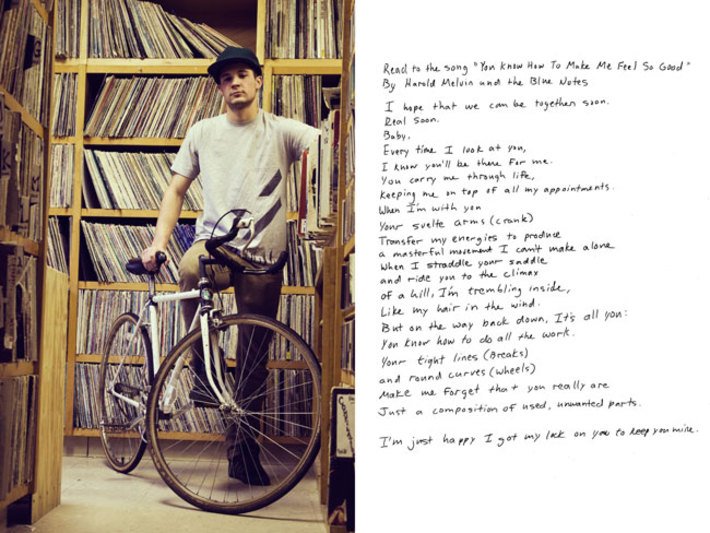 Read to the song "You Know How To Make Me Feel So Good"
By Harold Melvin and the Blue Notes
I hope that we can be together soon.
Real soon.
Baby.
Every time I look at you,
I know you'll be there for me.
You carry me through life,
Keeping me on top of all my appointments.
When I'm with you
Your svelte arms (crank)
Transfer my energies to produce
a masterful movement I can't make alone
When I straddle your saddle
and ride you to the climax
of a hill, I'm trembling inside,
Like my hair in the wind.
But on the way back down, It's all you:
You know how to do all the work.
Your tight lines (Breaks)
and round curves (wheels)
Make me forget that you really are
Just a composition of used, unwanted parts.
I'm just happy I got my lock on you to keep you mine.